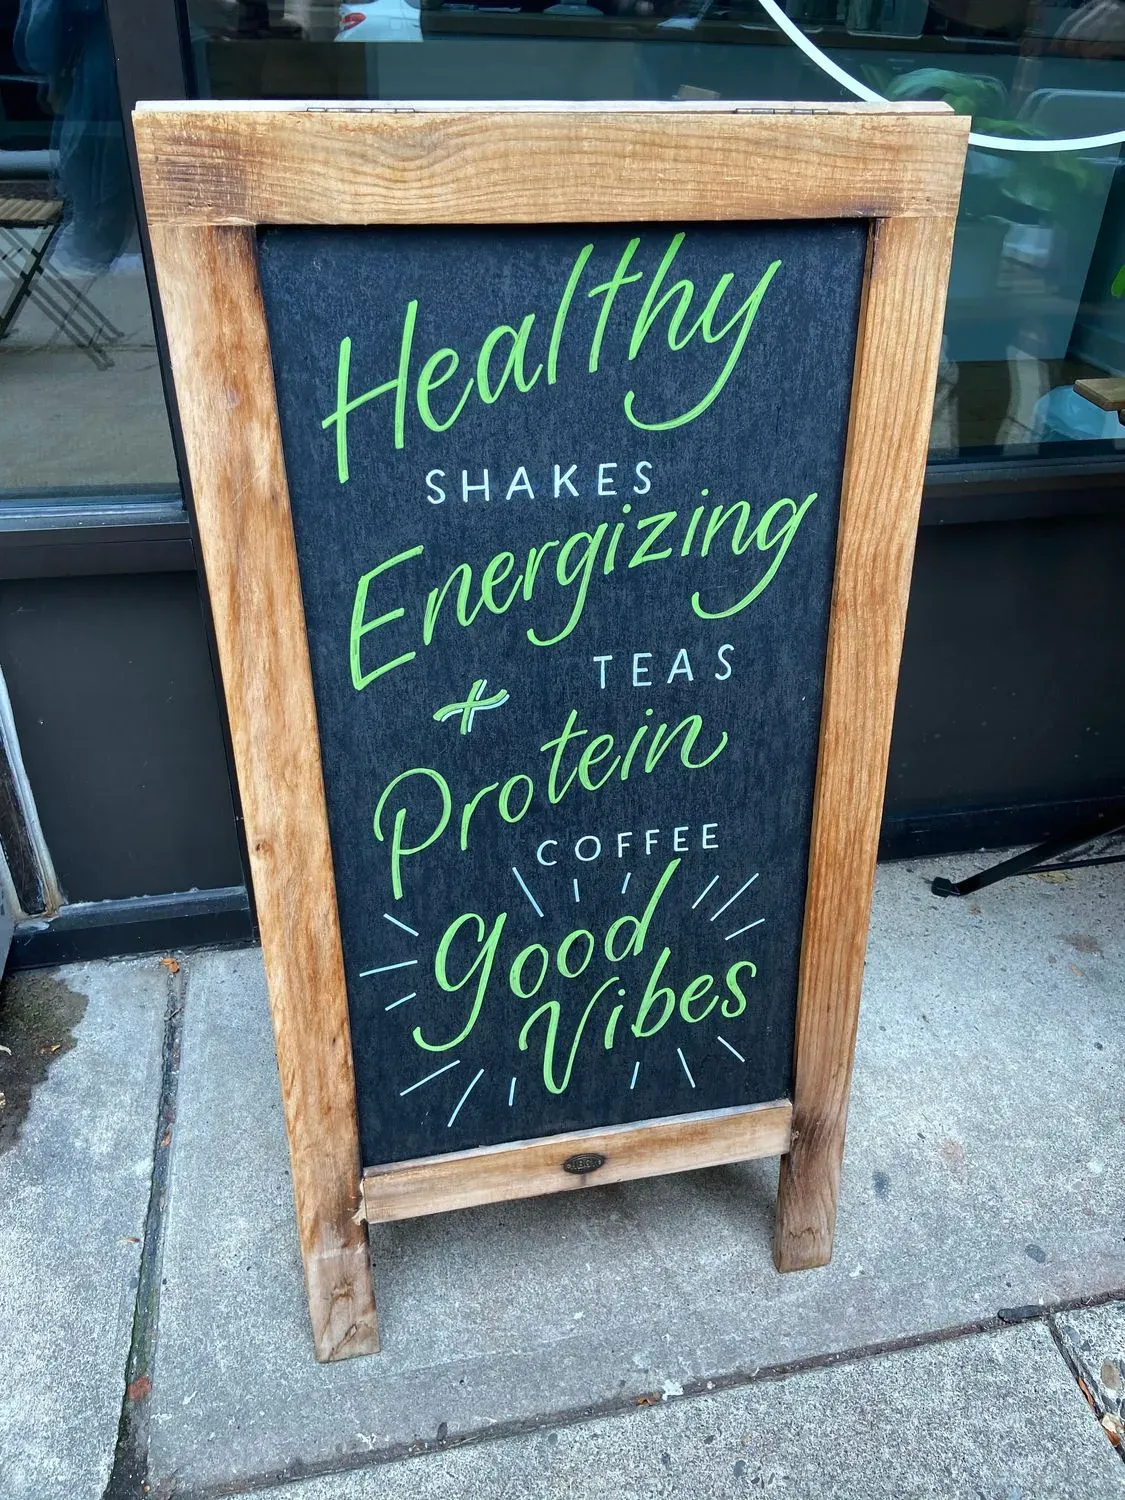 Healthy
SHAKES
Energizing
TEAS
+
Protein
COFFEE
good
Vibes